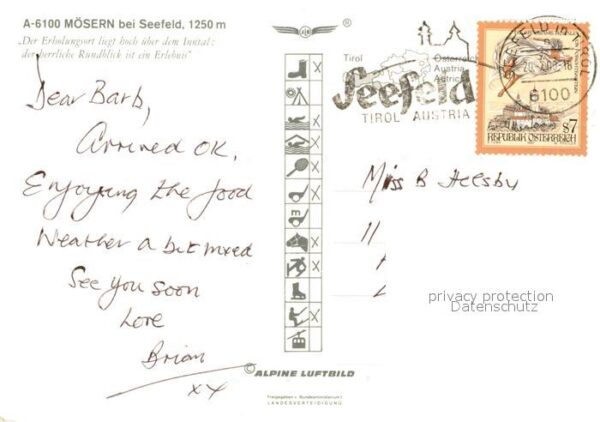 A-6100 MÖSERN bei Seefeld, 1250 m
„Der Erholungsort liegt hoch über dem Inntal:
der herrliche Rundblick ist ein Erlebnis"
Dear Barb,
Arrived OK,
Enjoying the food
Weather a bit mixed
See you soon
Love
Brian
xx
Tirol
Österreich
Austria
Autriche
Seefeld
TIROL AUSTRIA
SEEFELD IN TIROL
6100
S7
REPUBLIK ÖSTERREICH
Miss B Helsby
privacy protection
Datenschutz
m
© ALPINE LUFTBILD
Freigegeben v. Bundesministerium f.
LANDESVERTEIDIGUNG